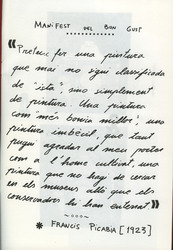 MANIFEST DEL BON GUST
"Pretenc fer una pintura
que mai no sigui classificada
de "ista", sinó simplement
de pintura. Una pintura
com més bonica millor; una
pintura imbècil, que tant
pugui agradar al meu porter
com a l'home cultivat, una
pintura que no hagi de cercar
en els museus allò que els
conservadors hi han enterrat."
* FRANCIS PICABIA [1923]